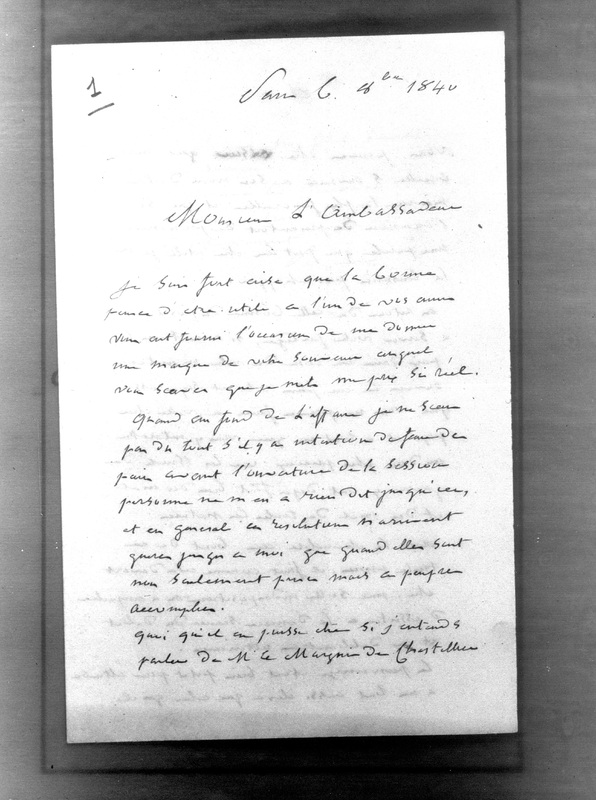 1
Paris 6. 8bre 1840
Monsieur L'Ambassadeur
Je suis fort aise que la bonne
pensée d'être utile a l'un de vos amis
vous ait fourni l'occasion de me donner
une marque de votre souvenir auquel
vous scavez que je mets un prix si réel.
Quand au fond de L'affaire je ne scais
pas du tout s'il y a intention de faire des
pairs avant l'ouverture de la session
personne ne m'en a rien dit jusqu'ici,
et en general les resolutions n'arrivent
gueres jusqu'a moi que quand elles sont
non seulement prises mais a peu près
accomplies.
quoi qu'il en puisse être si j'entends
parler de Mr le Marquis de Chastellux